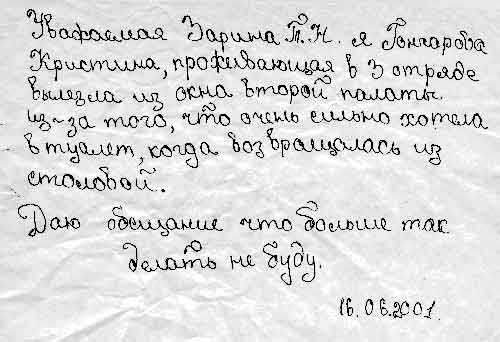 Уважаемая Зарина П.Н. я Гончарова
Кристина, проживающая в 3 отряде
вылезла из окна второй палаты
из-за того, что очень сильно хотела
в туалет, когда возвращалась из
столовой.
Даю обещание что больше так
делать не буду.
16.06.2001.